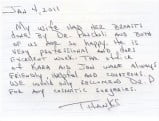 Jan 4, 2011
My wife had her breasts
done by Dr. and both
of us are so happy. He is
very professional and does
excellent work. The office
of Kara and Jon were always
friendly, helpful and courteous.
We would only recommend Dr. P
for any cosmetic surgeries.
Thanks